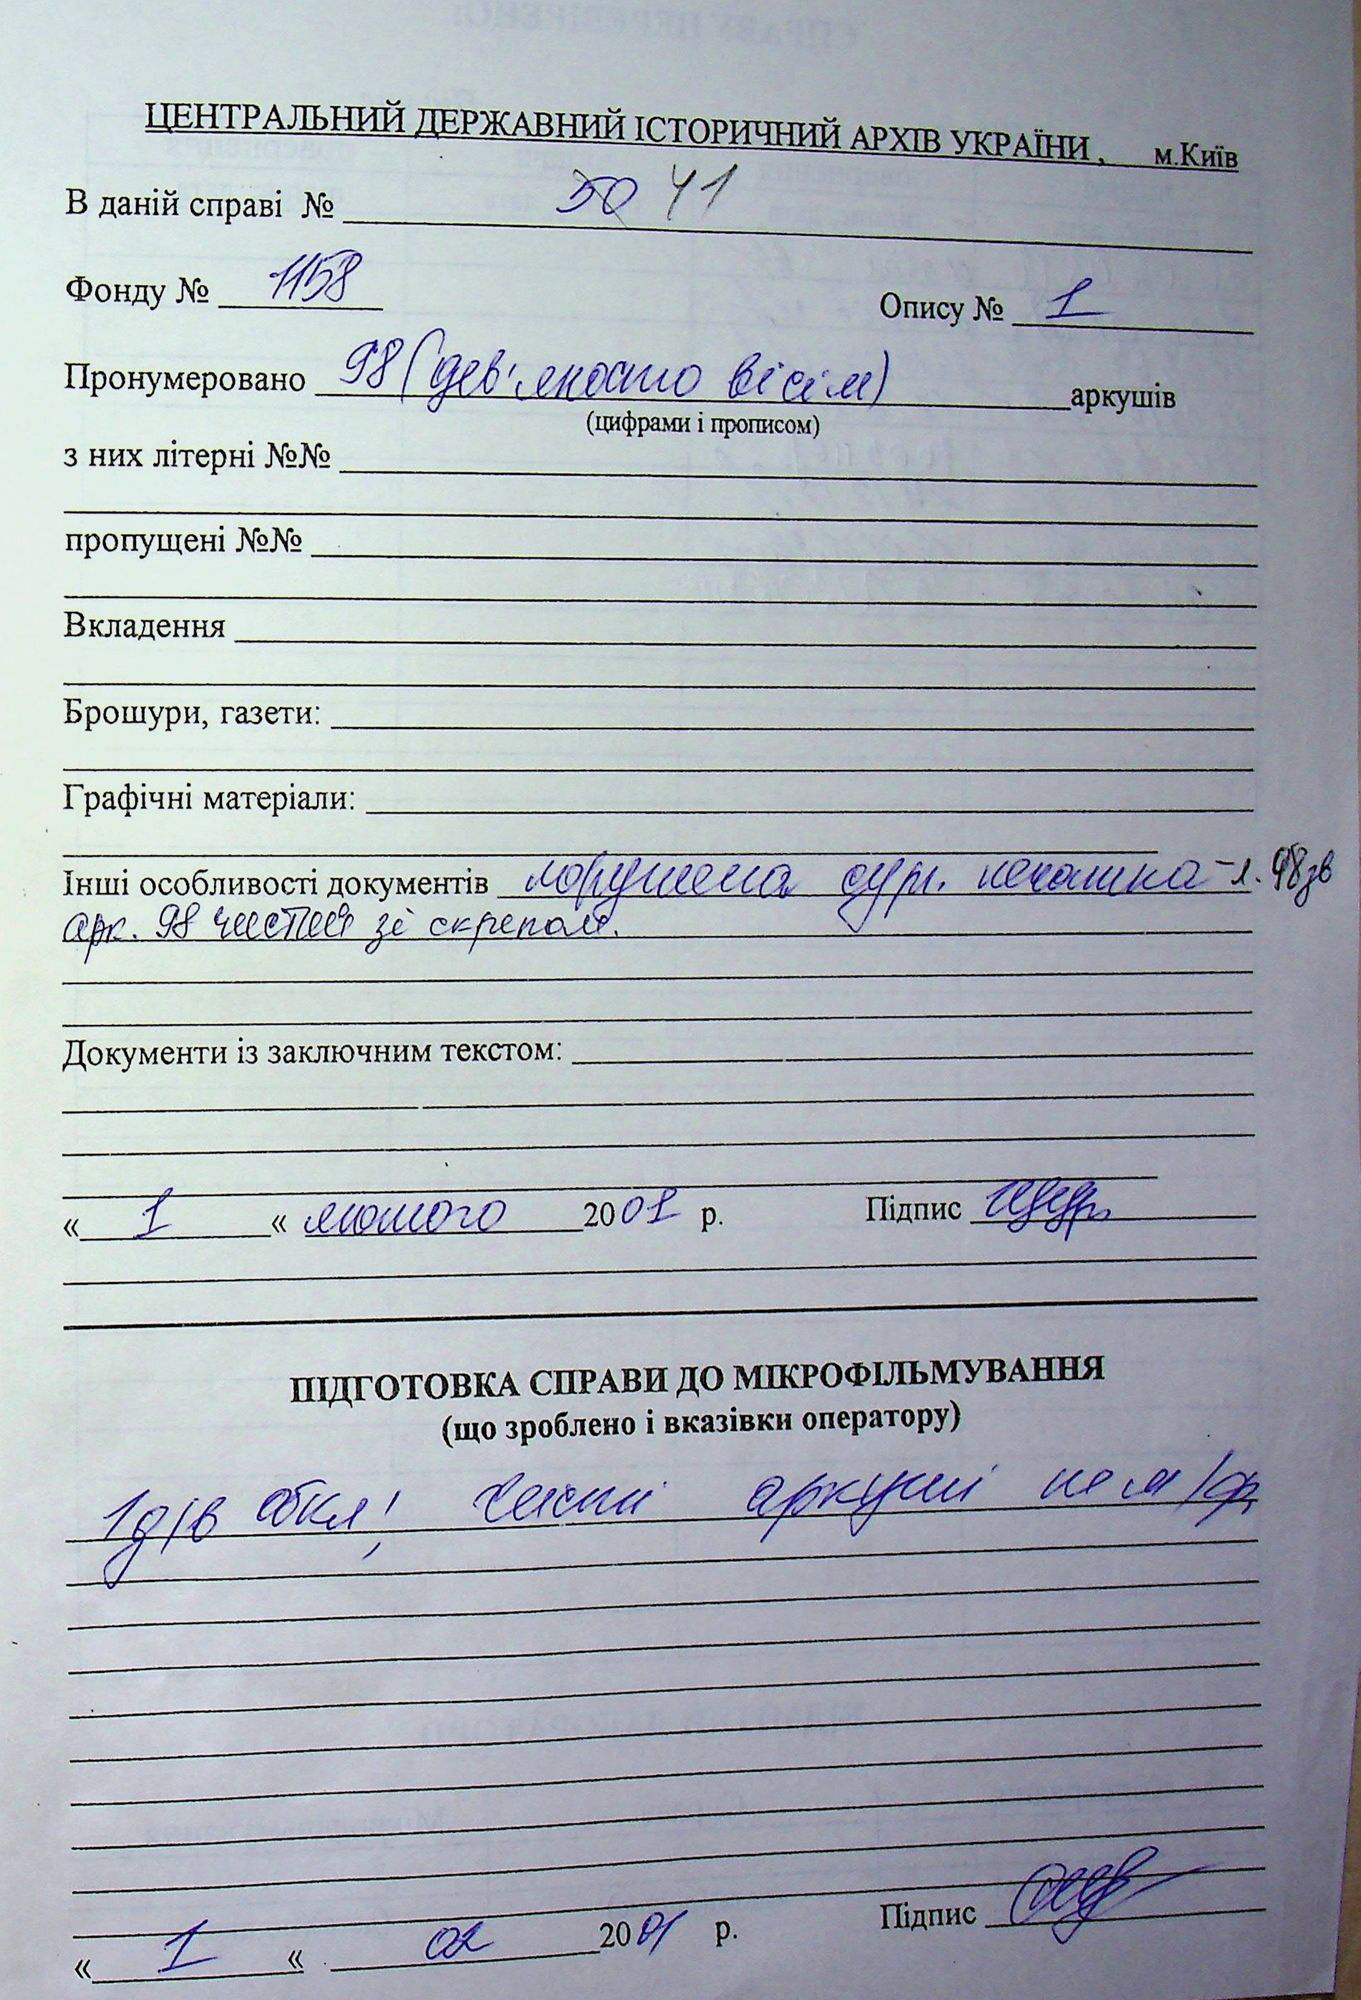 ЦЕНТРАЛЬНИЙ ДЕРЖАВНИЙ ІСТОРИЧНИЙ АРХІВ УКРАЇНИ, м.Київ
В даній справі № 50 41
Фонду № 1158 Опису № 1
Пронумеровано 98 (дев'яносто вісім) аркушів
(цифрами і прописом)
з них літерні №№
пропущені №№
Вкладення
Брошури, газети:
Графічні матеріали:
Інші особливості документів порушена сург. печатка - л. 98зв
арк. 98 чистий зі скрепом.
Документи із заключним текстом:
« 1 « лютого 2001 р. Підпис
ПІДГОТОВКА СПРАВИ ДО МІКРОФІЛЬМУВАННЯ
(що зроблено і вказівки оператору)
обкл, чисті аркуші не м/ф
« 1 « 02 2001 р. Підпис